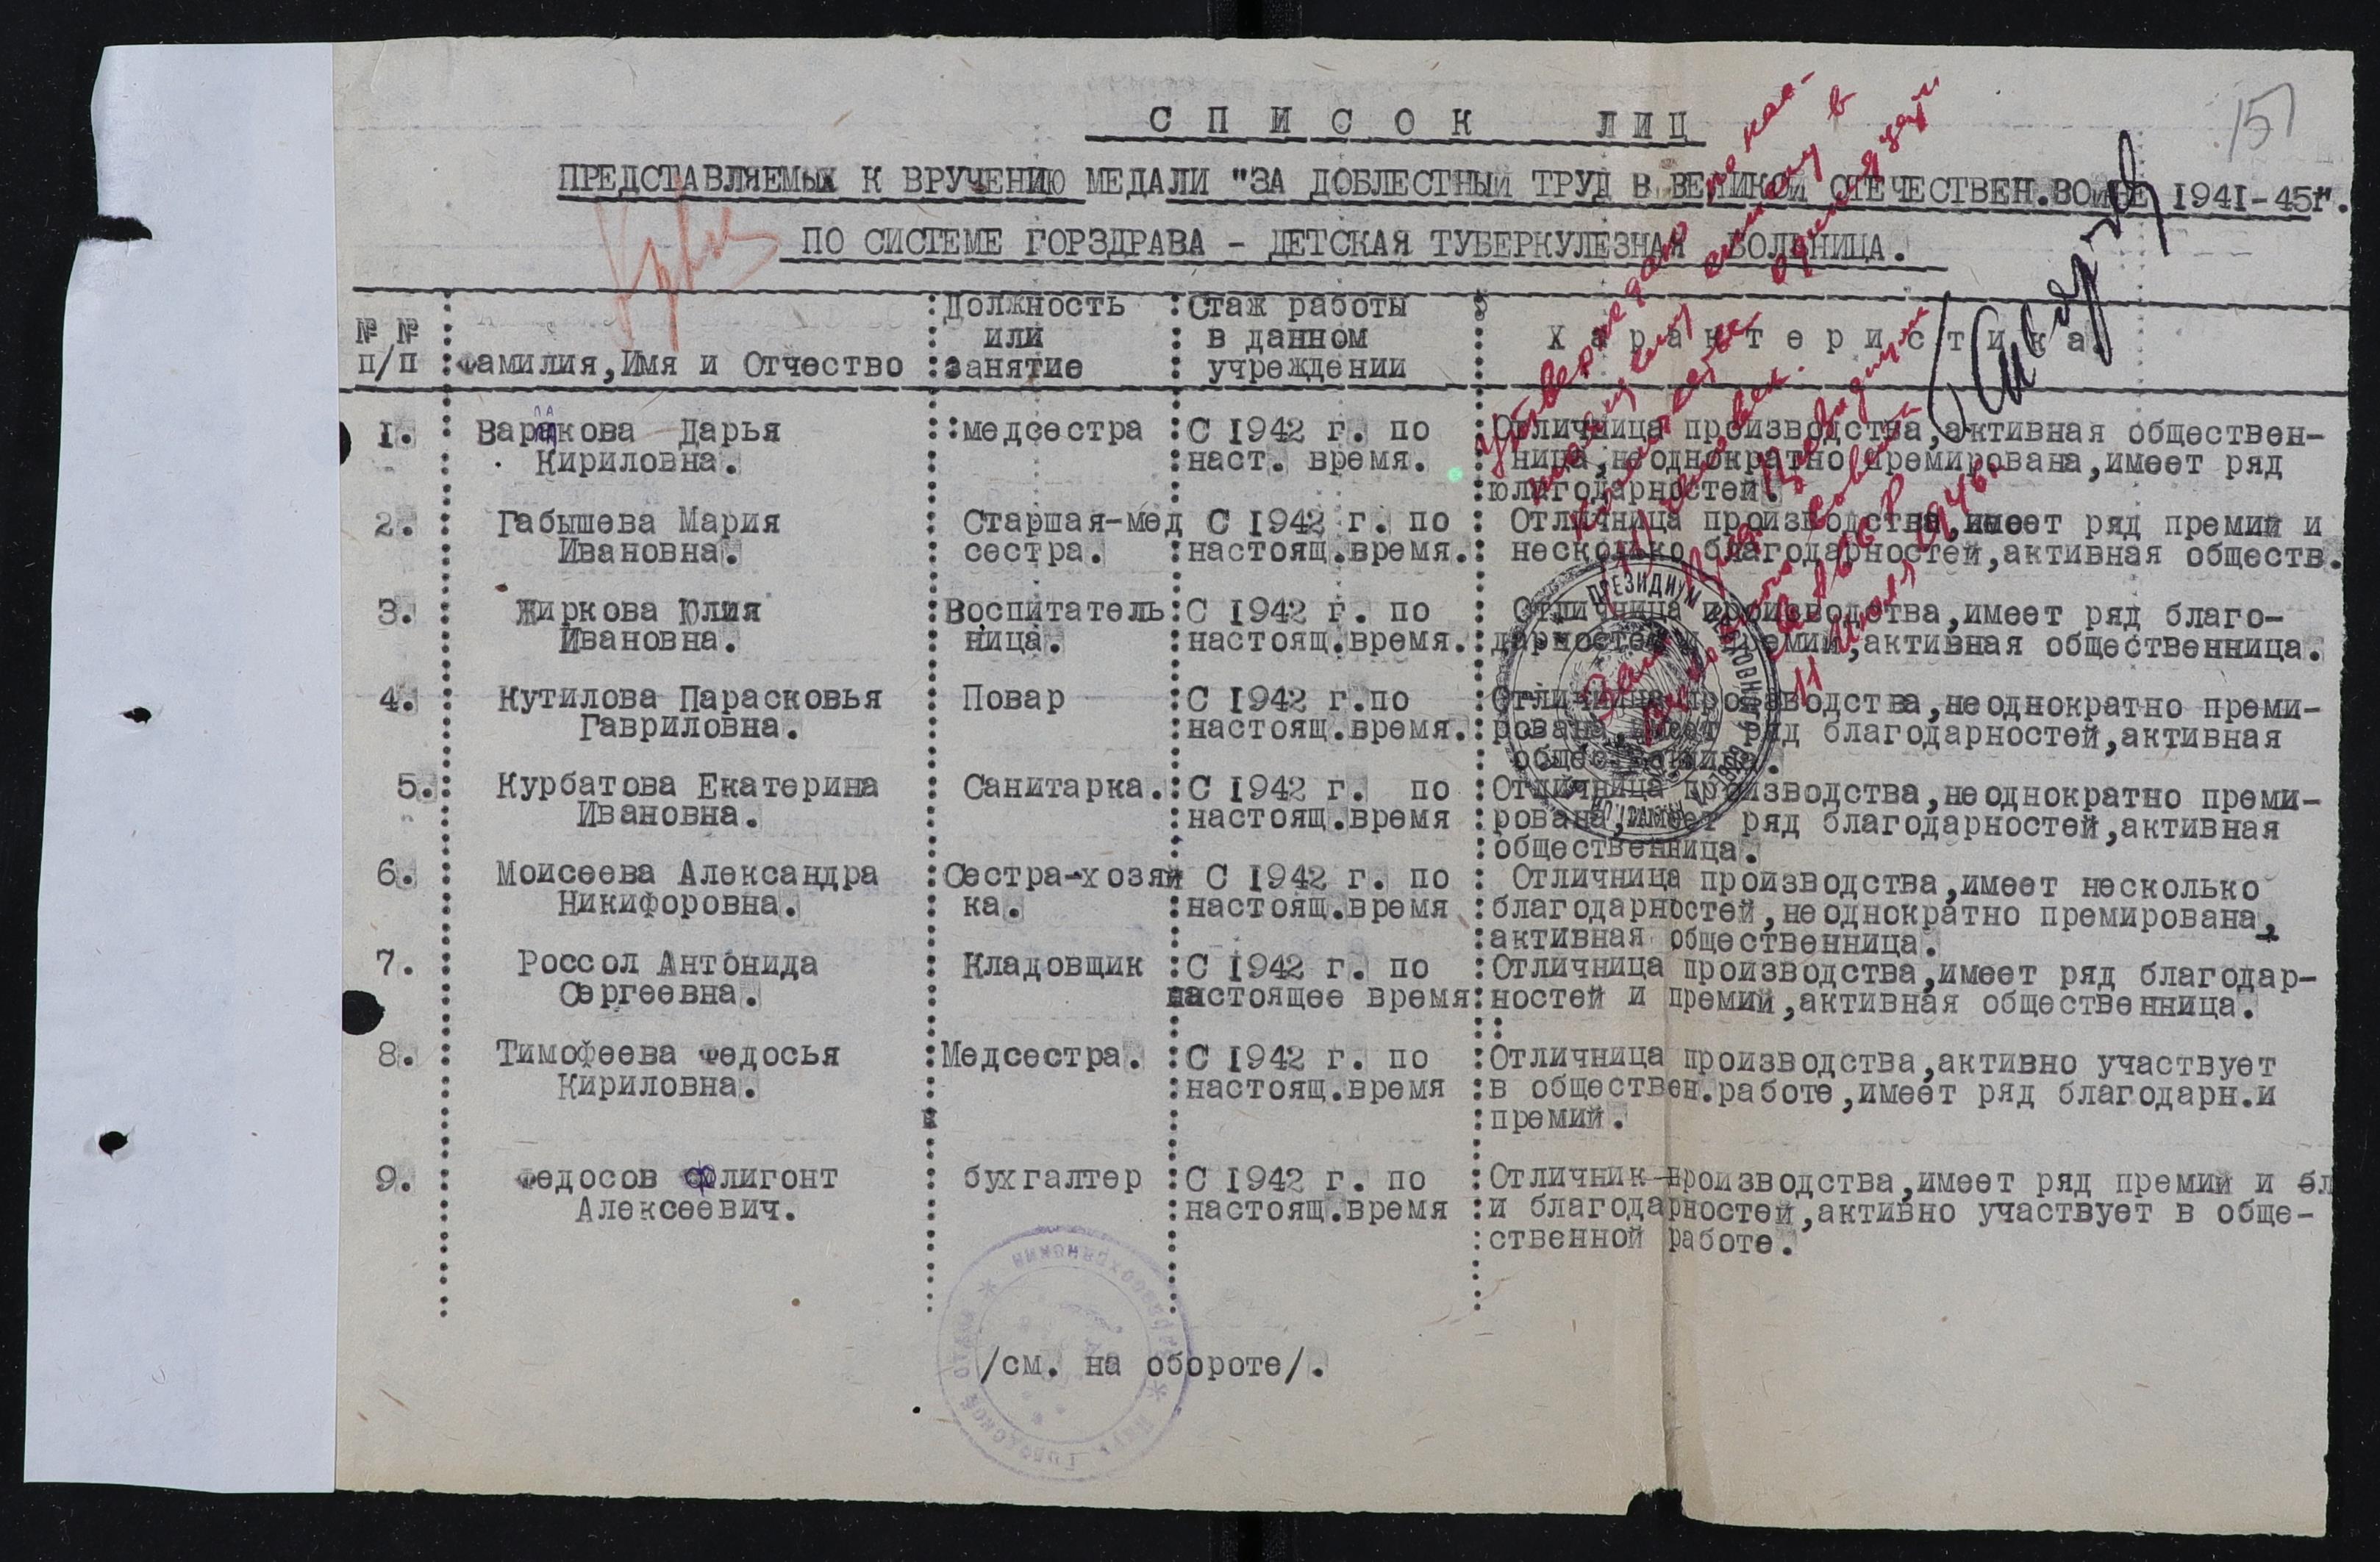 151
СПИСОК ЛИЦ
ПРЕДСТАВЛЯЕМЫХ К ВРУЧЕНИЮ МЕДАЛИ "ЗА ДОБЛЕСТНЫЙ ТРУД В ВЕЛИКОЙ ОТЕЧЕСТВЕН.ВОЙНЕ 1941-45г.
ПО СИСТЕМЕ ГОРЗДРАВА - ДЕТСКАЯ ТУБЕРКУЛЕЗНАЯ БОЛЬНИЦА.
№ № п/п
Фамилия, Имя и Отчество
Должность или занятие
Стаж работы в данном учреждении
Характеристика.
1. Варлакова Дарья медсестра С 1942 г. по Отличница производства, активная обществен-
Кириловна. наст. время. ница, неоднократно премирована, имеет ряд
благодарностей.
2. Габышева Мария Старшая-мед С 1942 г. по Отличница производства, имеет ряд премий и
Ивановна. сестра. настоящ.время. несколько благодарностей, активная обществ.
3. Жиркова Юлия Воспитатель С 1942 г. по Отличница производства, имеет ряд благо-
Ивановна. ница. настоящ.время. дарностей и премий, активная общественница.
4. Кутилова Парасковья Повар С 1942 г.по Отличница производства, неоднократно преми-
Гавриловна. настоящ.время. рована, имеет ряд благодарностей, активная
общественница.
5. Курбатова Екатерина Санитарка. С 1942 г. по Отличница производства, неоднократно преми-
Ивановна. настоящ.время рована, имеет ряд благодарностей, активная
общественница.
6. Моисеева Александра Сестра-хозяй С 1942 г. по Отличница производства, имеет несколько
Никифоровна. ка. настоящ.время благодарностей, неоднократно премирована,
активная общественница.
7. Россол Антонида Кладовщик С 1942 г. по Отличница производства, имеет ряд благодар-
Сергеевна. настоящее время ностей и премий, активная общественница.
8. Тимофеева Федосья Медсестра. С 1942 г. по Отличница производства, активно участвует
Кириловна. настоящ.время в обществен.работе, имеет ряд благодарн.и
премий.
9. Федосов Флигонт бухгалтер С 1942 г. по Отличник производства, имеет ряд премий и бл
Алексеевич. настоящ.время и благодарностей, активно участвует в обще-
ственной работе.
/см. на обороте/.
Утверждаю
ПРЕЗИДИУМ